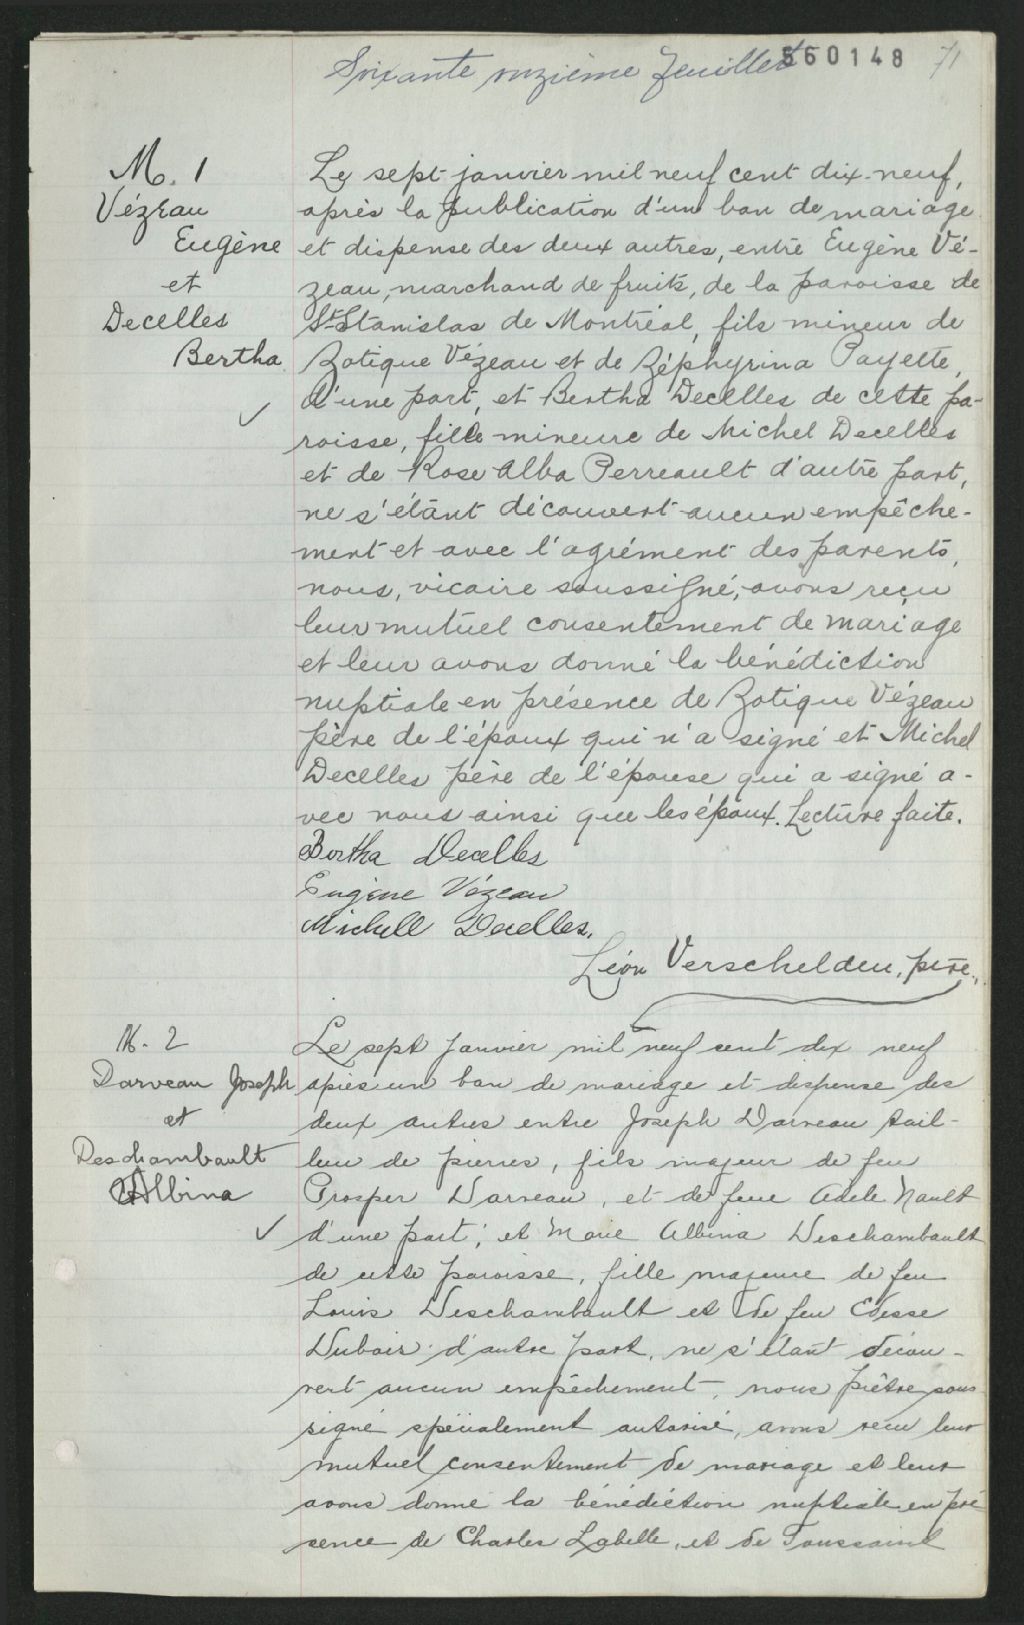 Soixante onzième feuillet 560148 71
M. 1
Vézeau
Eugène
et
Decelles
Bertha
Le sept janvier mil neuf cent dix-neuf,
après la publication d'un ban de mariage
et dispense des deux autres, entre Eugène Vé-
zeau, marchand de fruits, de la paroisse de
St-Stanislas de Montréal, fils mineur de
Zotique Vézeau et de Zéphyrina Payette,
d'une part, et Bertha Decelles de cette pa-
roisse, fille mineure de Michel Decelles
et de Rose Alba Perreault d'autre part,
ne s'étant découvert aucun empêche-
ment et avec l'agrément des parents,
nous, vicaire soussigné, avons reçu
leur mutuel consentement de mariage
et leur avons donné la bénédiction
nuptiale en présence de Zotique Vézeau
père de l'époux qui n'a signé et Michel
Decelles père de l'épouse qui a signé a-
vec nous ainsi que les époux. Lecture faite.
Bertha Decelles
Eugène Vézeau
Michell Decelles.
Léon Verschelden, ptre.
M. 2
Darveau Joseph
et
Deschambault
Albina
Le sept janvier mil neuf cent dix neuf
après un ban de mariage et dispense des
deux autres entre Joseph Darveau tail-
leur de pierres, fils majeur de feu
Prosper Darveau, et de feue Adèle Nault
d'une part; et Marie Albina Deschambault
de cette paroisse, fille majeure de feu
Louis Deschambault et de feu Edesse
Dubois d'autre part, ne s'étant décou-
vert aucun empêchement, nous prêtre sous-
signé spécialement autorisé, avons reçu leur
mutuel consentement de mariage et leur
avons donné la bénédiction nuptiale en pré
sence de Charles Labelle, et de Toussaint